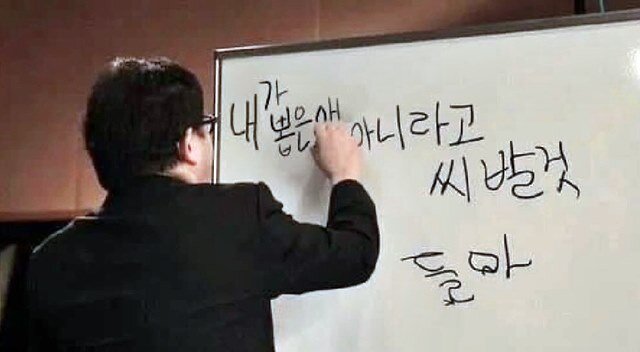 내가 뽑은애 아니라고
씨발것
들마